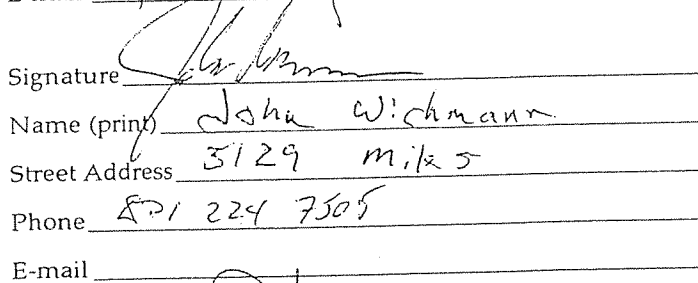 Signature
Name (print) John Wichmann
Street Address 5129 Miles
Phone 224 7505
E-mail